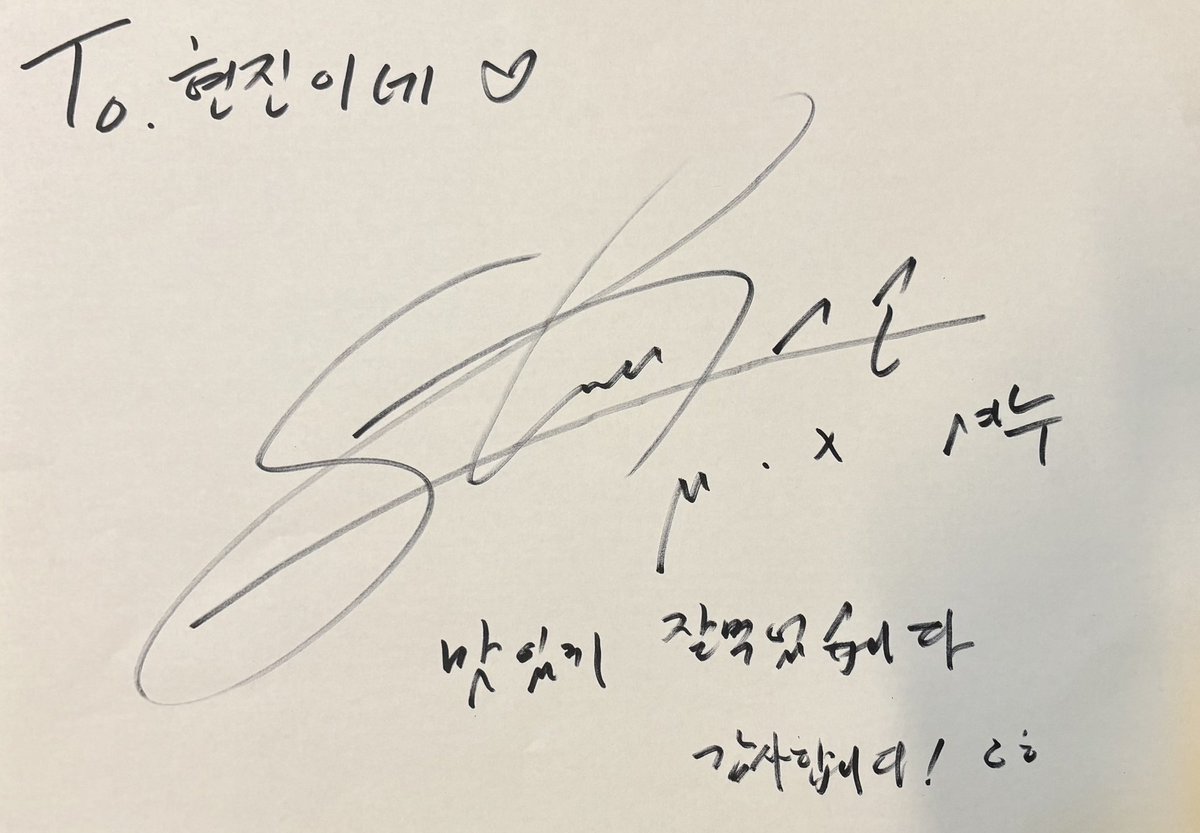 To. 현진이네 ♡
M. X 셔누
맛있게 잘먹었습니다
감사합니다!